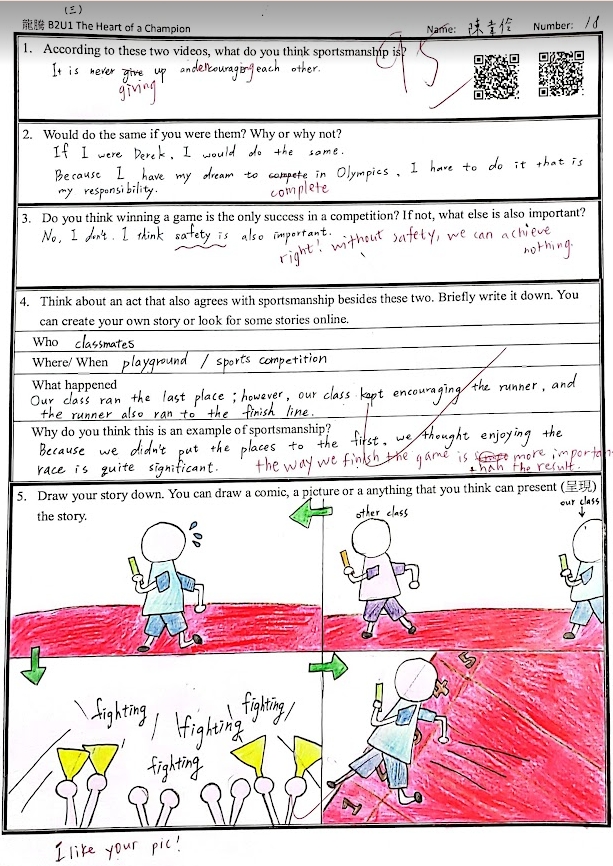 (三)
龍騰 B2U1 The Heart of a Champion
Name: Number: 18
95
1. According to these two videos, what do you think sportsmanship is?
It is never give up and encouraging each other.
giving
2. Would do the same if you were them? Why or why not?
If I were Derek, I would do the same.
Because I have my dream to compete in Olympics, I have to do it that is
my responsibility.
complete
3. Do you think winning a game is the only success in a competition? If not, what else is also important?
No, I don't. I think safety is also important.
right! without safety, we can achieve
nothing.
4. Think about an act that also agrees with sportsmanship besides these two. Briefly write it down. You
can create your own story or look for some stories online.
Who classmates
Where/ When playground / sports competition
What happened
Our class ran the last place ; however, our class kept encouraging the runner, and
the runner also ran to the finish line.
Why do you think this is an example of sportsmanship?
Because we didn't put the places to the first, we thought enjoying the
race is quite significant.
the way we finish the game is more important
than the result.
5. Draw your story down. You can draw a comic, a picture or a anything that you think can present (呈現)
the story.
our class
other class
fighting
fighting
fighting
fighting
5
4
1
I like your pic!